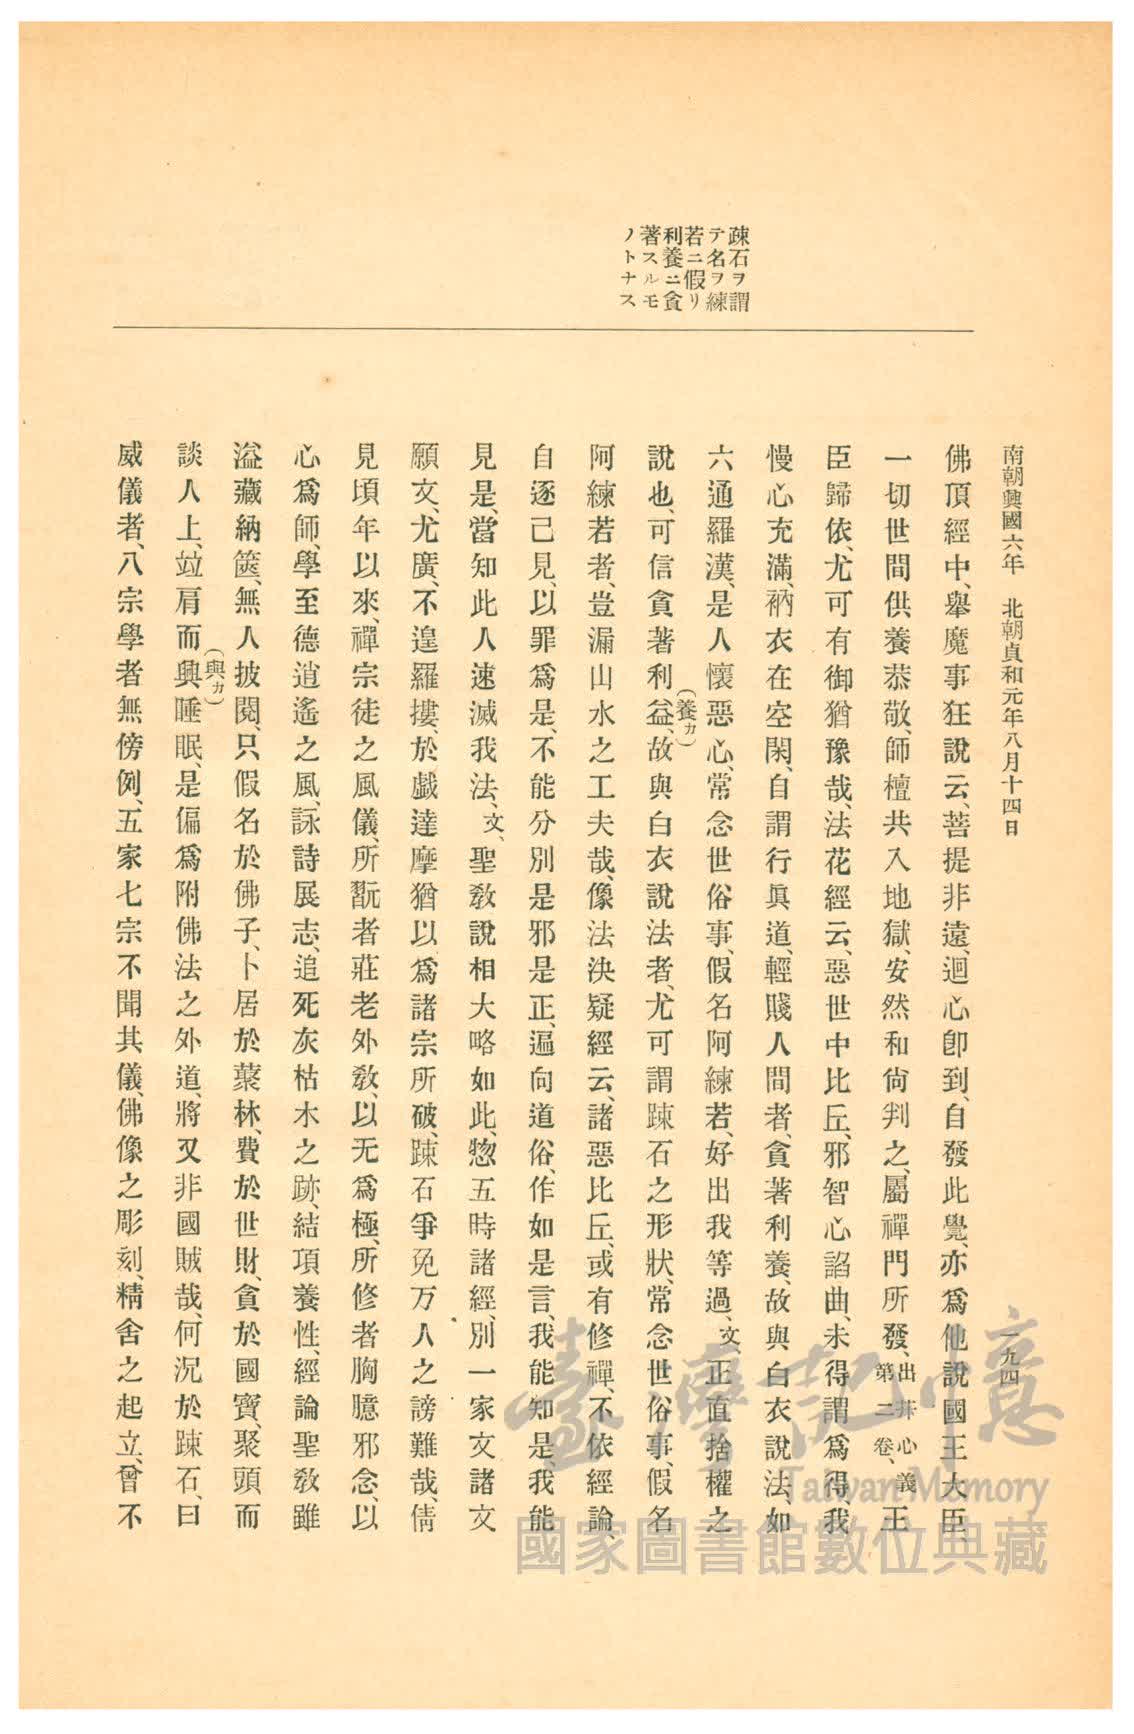 南朝興國六年　北朝貞和元年八月十四日
一九四
疎石ヲ謂
テ名ヲ練
若ニ假リ
利養ニ貪
著スルモ
ノトナス
佛頂經中、擧魔事狂說云、菩提非遠、迴心卽到、自發此覺、亦爲他說國王大臣、
一切世間供養恭敬、師檀共入地獄、安然和尙判之、屬禪門所發、出菩心義第二卷、王
臣歸依、尤可有御猶豫哉、法花經云、惡世中比丘、邪智心諂曲、未得謂爲得、我
慢心充滿、衲衣在空閑、自謂行眞道、輕賤人間者、貪著利養、故與白衣說法、如
六通羅漢、是人懷惡心、常念世俗事、假名阿練若、好出我等過、文、正直捨權之
說也、可信貪著利益、(養カ)故與白衣說法者、尤可謂踈石之形狀、常念世俗事、假名
阿練若者、豈漏山水之工夫哉、像法決疑經云、諸惡比丘、或有修禪、不依經論、
自逐己見、以罪爲是、不能分別是邪是正、遍向道俗、作如是言、我能知是、我能
見是、當知此人速滅我法、文、聖敎說相大略如此、惣五時諸經、別一家文諸文
願文、尤廣、不遑羅摟、於戲達摩猶以爲諸宗所破、踈石爭免万人之謗難哉、倩
見頃年以來、禪宗徒之風儀、所翫者莊老外敎、以无爲極、所修者胸臆邪念、以
心爲師、學至德逍遙之風、詠詩展志、追死灰枯木之跡、結項養性、經論聖敎雖
溢藏納篋、無人披閱、只假名於佛子、卜居於藂林、費於世財、貪於國寶、聚頭而
談人上、竝肩而興(與カ)睡眠、是偏爲附佛法之外道、將又非國賊哉、何況於踈石、曰
威儀者、八宗學者無傍例、五家七宗不聞其儀、佛像之彫刻、精舍之起立、曾不
臺灣記憶
Taiwan Memory
國家圖書館數位典藏